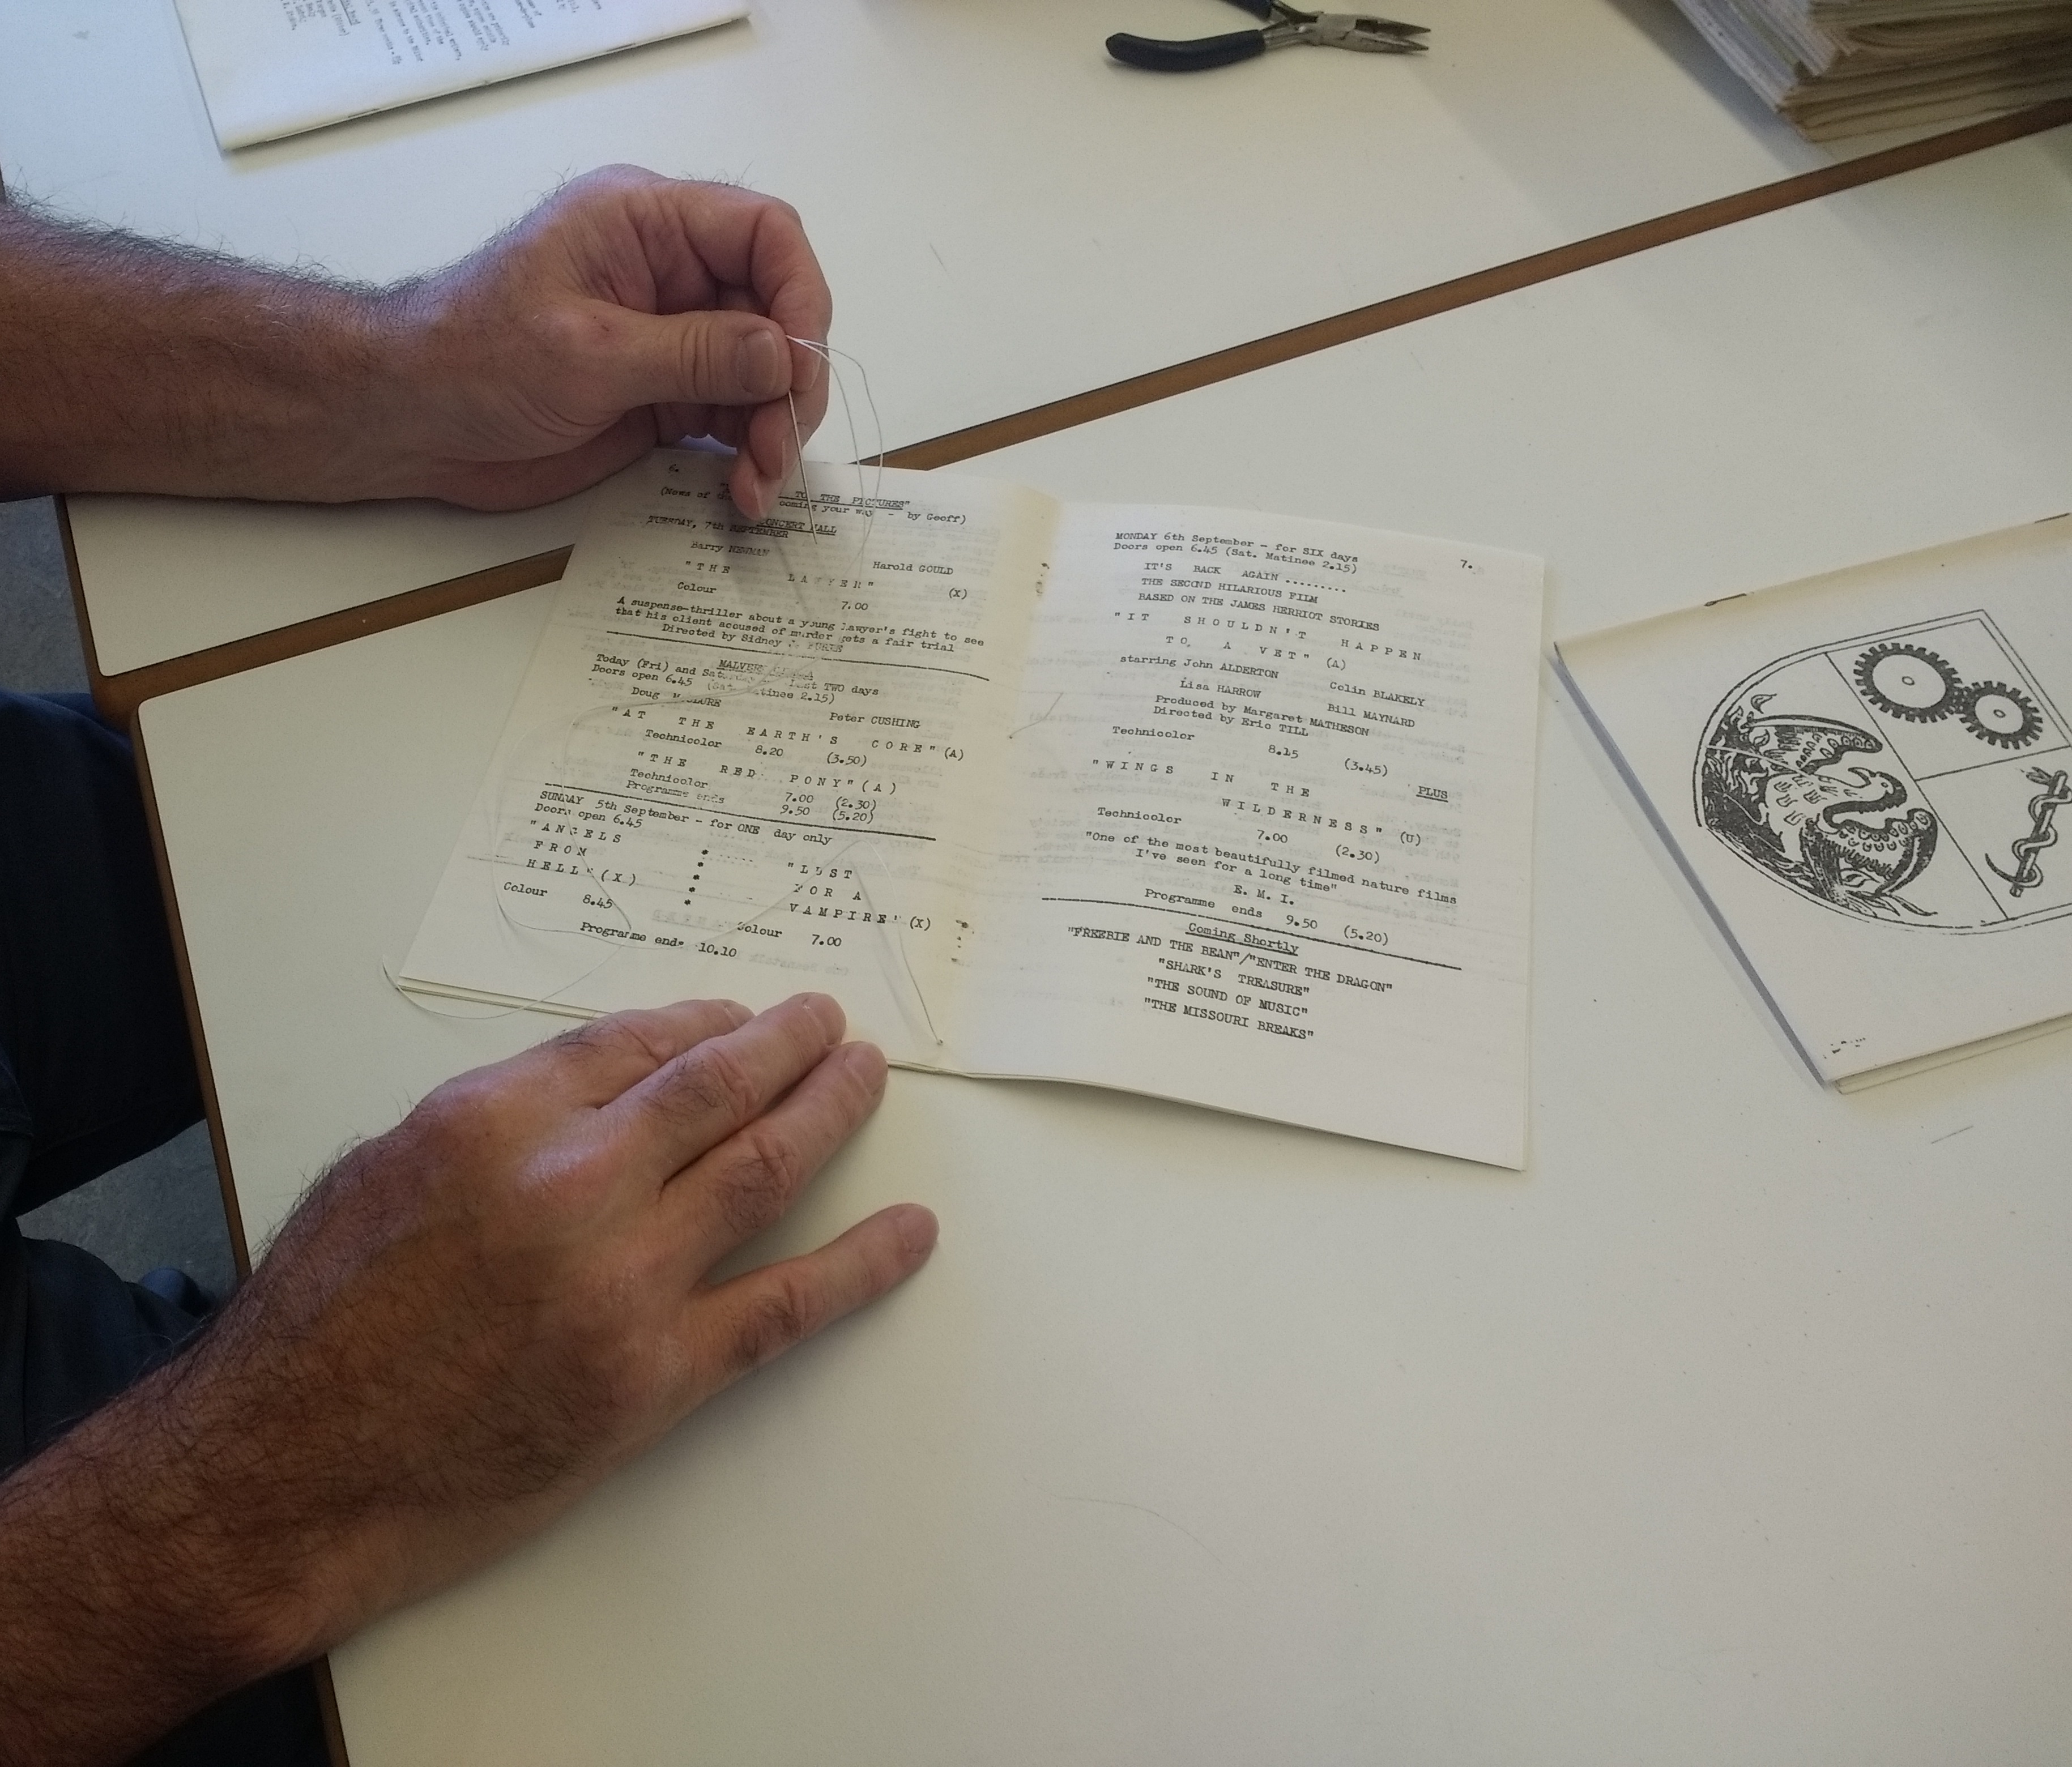 6.
TO THE PICTURES"
(News of
coming your way - by Geoff)
CONCERT HALL
TUESDAY, 7th SEPTEMBER
Barry NEWMAN
Harold GOULD
"THE LAWYER" (X)
Colour 7.00
A suspense-thriller about a young lawyer's fight to see
that his client accused of murder gets a fair trial
Directed by Sidney
MALVERN
Today (Fri) and Saturday TWO days
Doors open 6.45 (Sat. Matinee 2.15)
Doug
Peter CUSHING
"AT THE EARTH'S CORE" (A)
Technicolor 8.20 (3.50)
"THE RED PONY" (A)
Technicolor 7.00 (2.30)
Programme ends 9.50 (5.20)
SUNDAY 5th September - for ONE day only
Doors open 6.45
"ANGELS
FROM
HELL" (X)
Colour
8.45
"LUST
FOR A
VAMPIRE" (X)
Colour 7.00
Programme ends 10.10
7.
MONDAY 6th September - for SIX days
Doors open 6.45 (Sat. Matinee 2.15)
IT'S BACK AGAIN ........
THE SECOND HILARIOUS FILM
BASED ON THE JAMES HERRIOT STORIES
"IT SHOULDN'T HAPPEN
TO A VET" (A)
starring John ALDERTON
Colin BLAKELY
Lisa HARROW
Bill MAYNARD
Produced by Margaret MATHESON
Directed by Eric TILL
Technicolor 8.15 (3.45)
PLUS
"WINGS IN THE
WILDERNESS" (U)
Technicolor 7.00 (2.30)
"One of the most beautifully filmed nature films
I've seen for a long time"
E. M. I.
Programme ends 9.50 (5.20)
Coming Shortly
"FREEBIE AND THE BEAN"/"ENTER THE DRAGON"
"SHARK'S TREASURE"
"THE SOUND OF MUSIC"
"THE MISSOURI BREAKS"